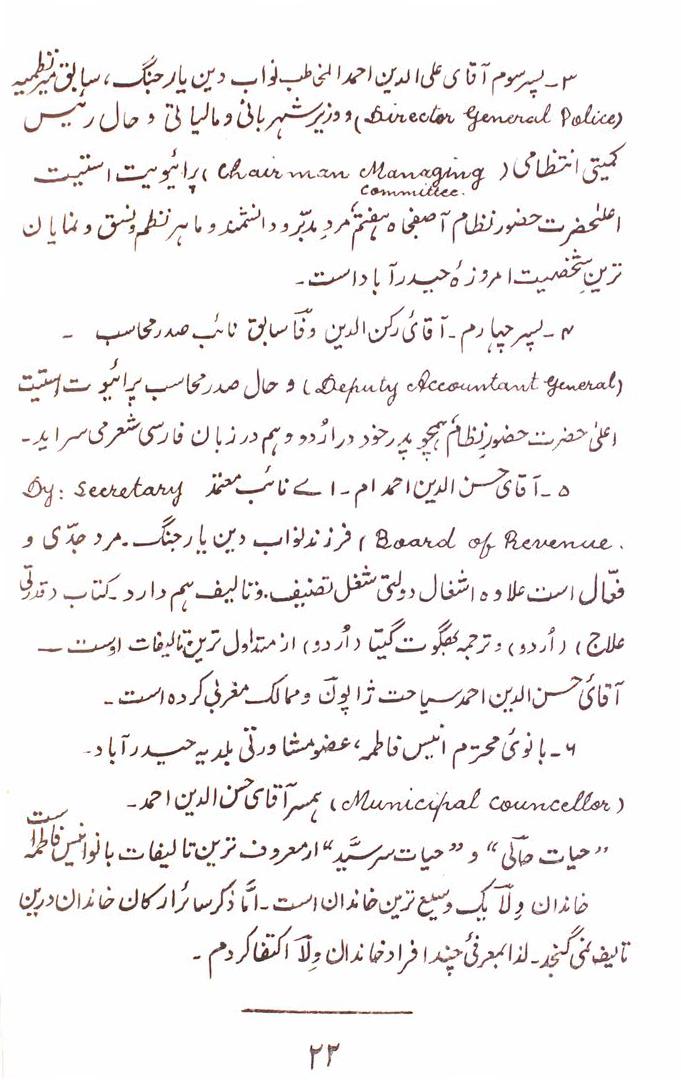 ۳ ـ پسر سوم آقای علی الدین احمد المخاطب نواب دین یار جنگ، سابق میر نظمیه
(Director General Police) و وزیر شهربانی و مالیاتی و حال رئیس
کمیتی انتظامی (Chairman Managing Committee.) پرائیویت استیت
اعلیٰحضرت حضور نظام آصفجاه هفتم، مرد مدبّر و دانشمند و ماهر نظم و نسق و نمایان
ترین شخصیت امروزهٔ حیدرآباد است ـ
۴ ـ پسر چهارم ـ آقای رکن الدین وفاؔ سابق نائب صدر محاسب ـ
(Deputy Accountant General) و حال صدر محاسب پرائیوت استیت
اعلیٰ حضرت حضور نظام همچو پدر خود در اُردو و هم در زبان فارسی شعر می سراید ـ
۵ ـ آقای حسن الدین احمد ام ـ اے نائب معتمد Dy: Secretary
Board of Revenue.) فرزند نواب دین یار جنگ ـ مرد جدّی و
فعّال است علاوه اشغال دولتی شغل تصنیف و تالیف هم دارد ـ کتاب (قدرتی
علاج) (اُردو) و ترجمه بھگوت گیتا (اُردو) از متداول ترین تالیفات اوست ـ
آقای حسن الدین احمد سیاحت ژاپون و ممالک مغربی کرده است ـ
۶ ـ بانوی محترم انیس فاطمه، عضو مشاورتی بلدیه حیدرآباد ـ
(Municipal councellor) همسر آقای حسن الدین احمد ـ
”حیات حالؔی“ و ”حیات سر سیّد“ از معروف ترین تالیفات بانو انیس فاطمه است
خاندان وِلاؔ یک وسیع ترین خاندان است ـ امّا ذکر سائر ارکان خاندان درین
تالیف نمی گنجد ـ لذا بمعرفیٔ چند افراد خاندان وِلاؔ اکتفا کردم ـ
۲۲